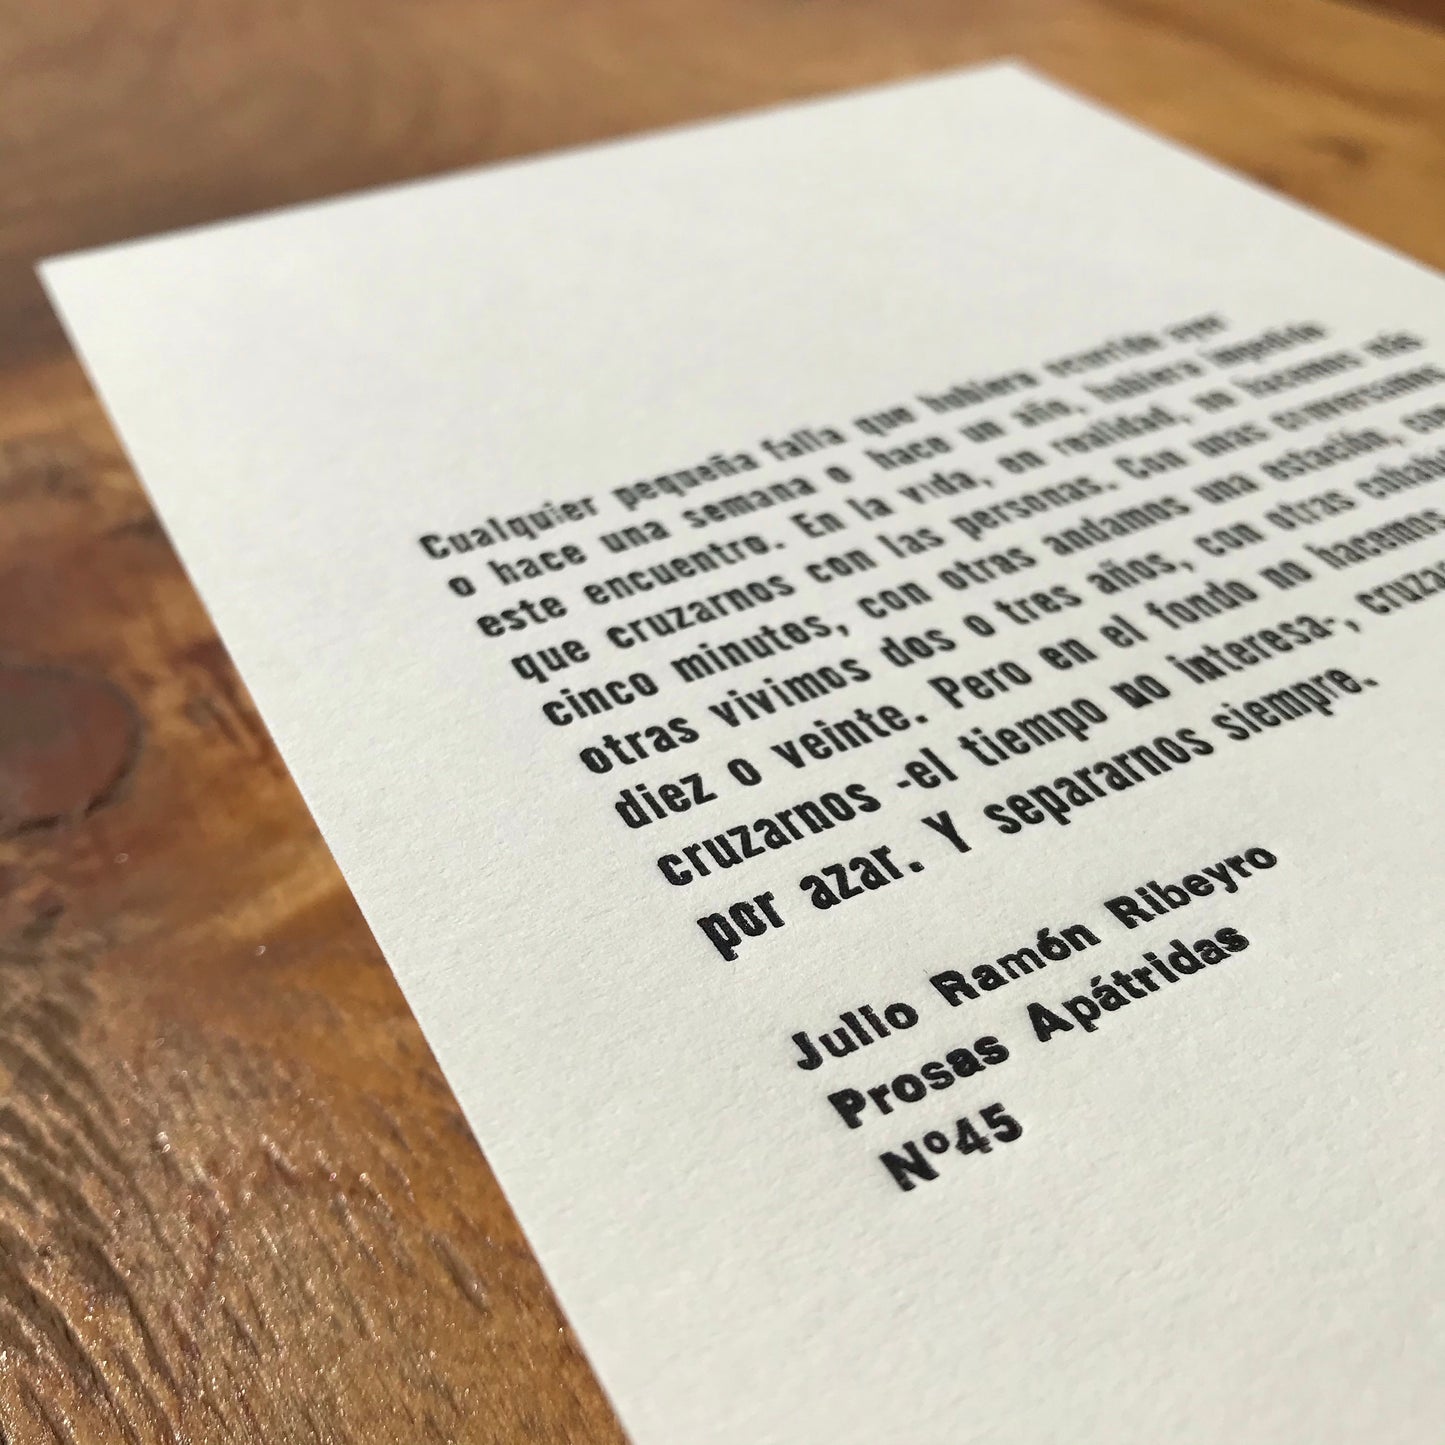 Cualquier pequeña falla que hubiera ocurrido ayer
o hace una semana o hace un año, hubiera impedido
este encuentro. En la vida, en realidad, no hacemos más
que cruzarnos con las personas. Con unas conversamos
cinco minutos, con otras andamos una estación, con
otras vivimos dos o tres años, con otras
diez o veinte. Pero en el fondo no hacemos
cruzarnos -el tiempo no interesa-,
por azar. Y separarnos siempre.
Julio Ramón Ribeyro
Prosas Apátridas
Nº45